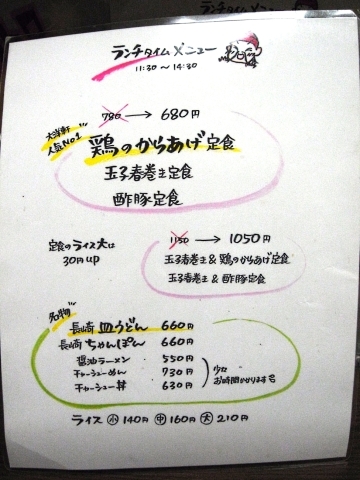 ランチタイムメニュー
11:30～14:30
780 → 680円
人気No1
鶏のからあげ定食
玉子春巻き定食
酢豚定食
定食のライス大は
30円up
1150 → 1050円
玉子春巻き & 鶏のからあげ定食
玉子春巻き & 酢豚定食
名物
長崎 皿うどん 660円
長崎 ちゃんぽん 660円
醤油ラーメン 550円
チャーシューめん 730円
チャーシュー丼 630円
少々
お時間かかります
ライス 小 140円 中 160円 大 210円